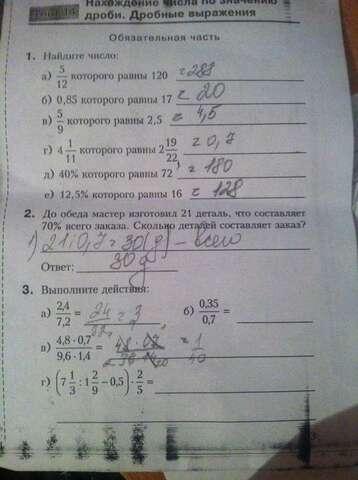 Нахождение числа по значению
дроби. Дробные выражения
Обязательная часть
1. Найдите число:
а) 5/12 которого равны 120 = 288
б) 0,85 которого равны 17 = 20
в) 5/9 которого равны 2,5 = 4,5
г) 4 1/11 которого равны 2 19/22 = 0,7
д) 40% которого равны 72 = 180
е) 12,5% которого равны 16 = 128
2. До обеда мастер изготовил 21 деталь, что составляет
70% всего заказа. Сколько деталей составляет заказ?
1) 21:0,7=30(д) – всего
Ответ: 30 д
3. Выполните действия:
а) 2,4/7,2 = б) 0,35/0,7 =
в) 4,8 · 0,7/9,6 · 1,4 = = 1/40
г) (7 1/3 : 1 2/9 – 0,5) · 2/5 =